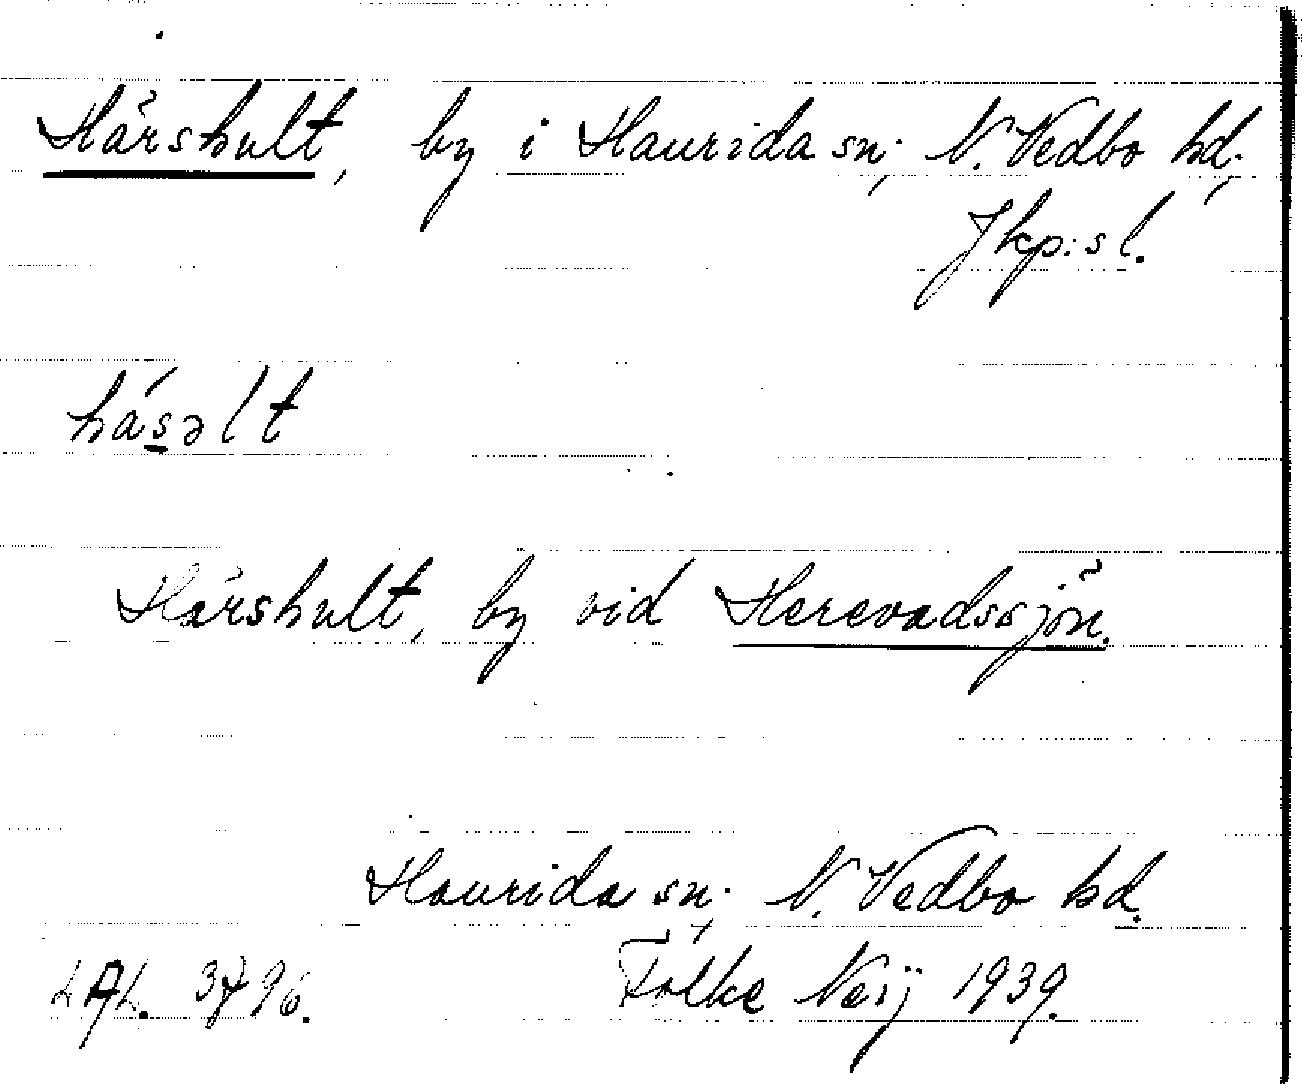 Hårshult, by i Haurida sn; N. Vedbo hd;
Jkp:s l.
håsəlt
Hårshult, by vid Herevadssjön.
Haurida sn; N. Vedbo hd.
LAL. 3796. Folke Neij 1939.